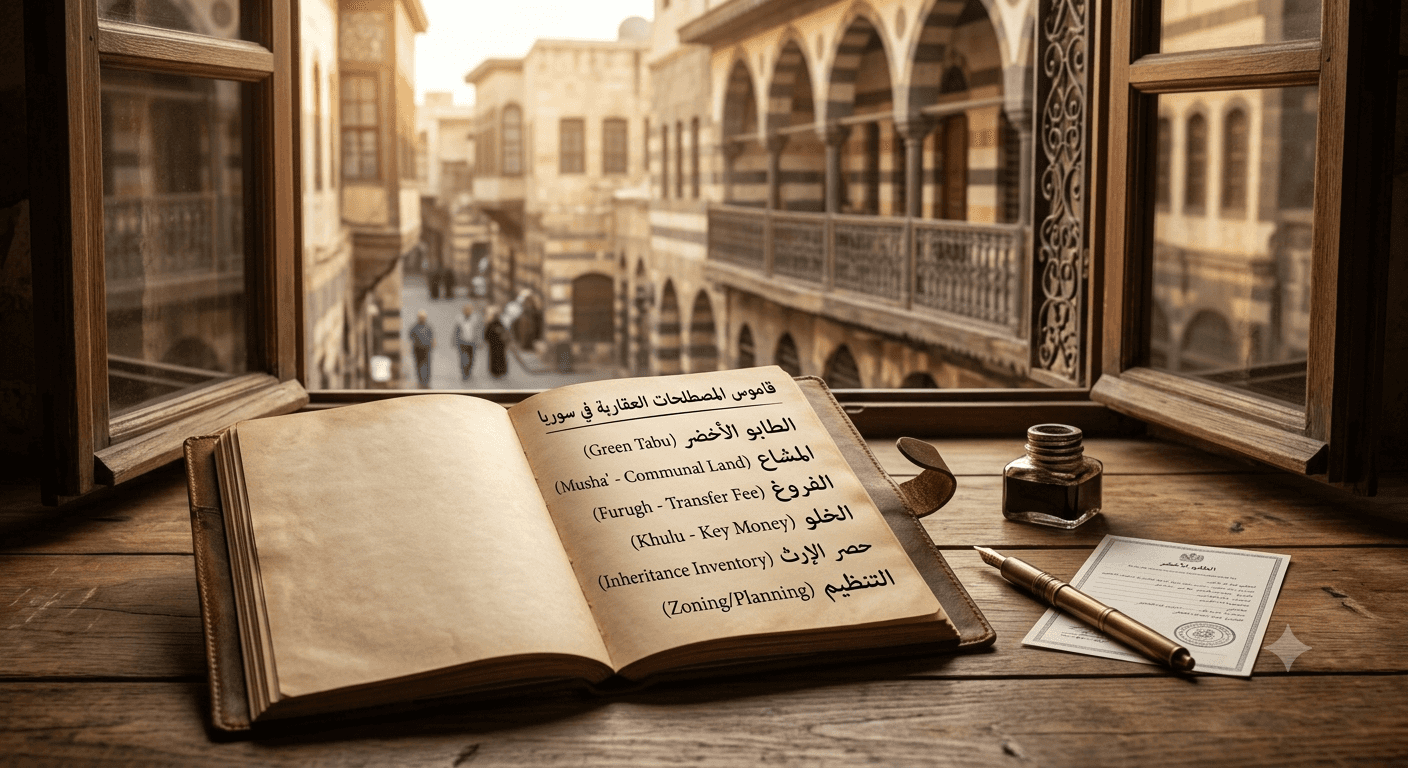 قاموس المصطلحات العقارية في سوريا
الطابو الأخضر (Green Tabu)
المشاع (Musha' - Communal Land)
الفروغ (Furugh - Transfer Fee)
الخلو (Khulu - Key Money)
حصر الإرث (Inheritance Inventory)
التنظيم (Zoning/Planning)